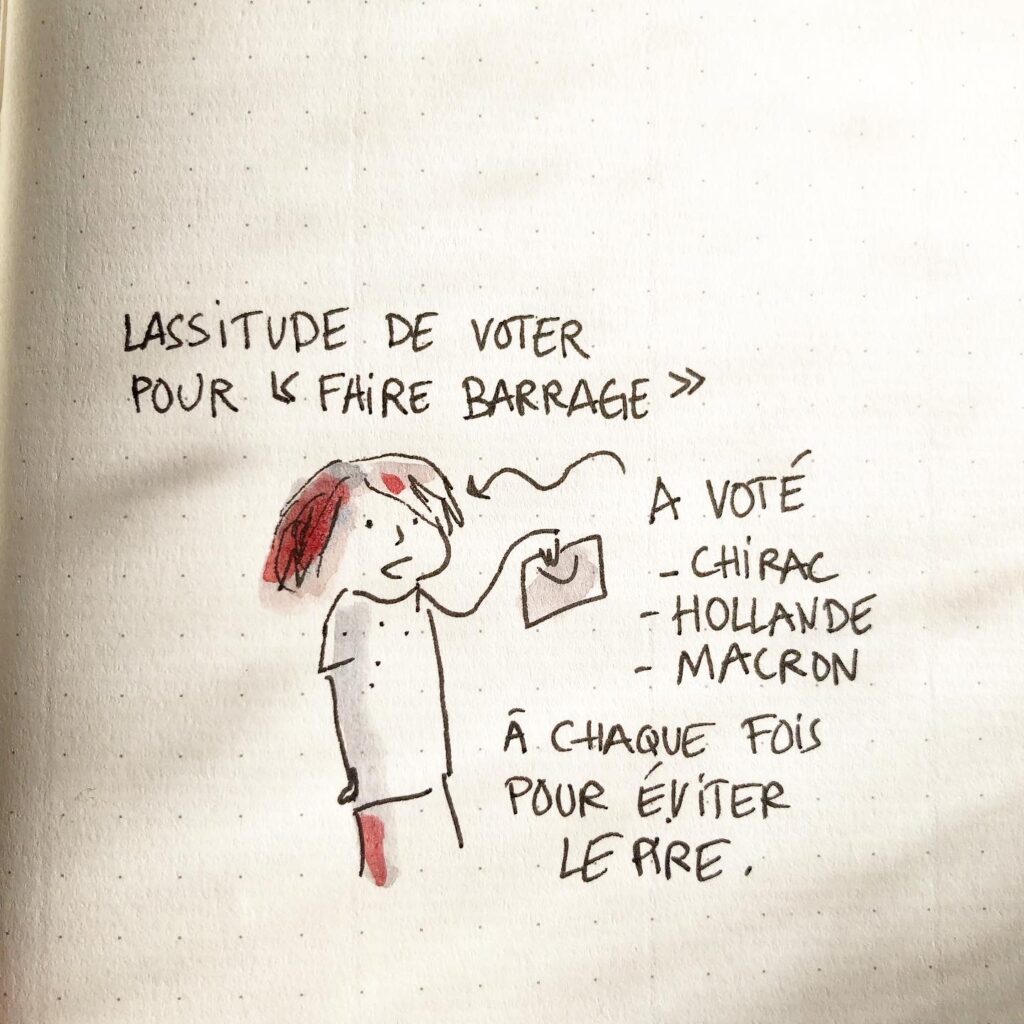 LASSITUDE DE VOTER
POUR « FAIRE BARRAGE »
A VOTÉ
- CHIRAC
- HOLLANDE
- MACRON
À CHAQUE FOIS
POUR ÉVITER
LE PIRE.